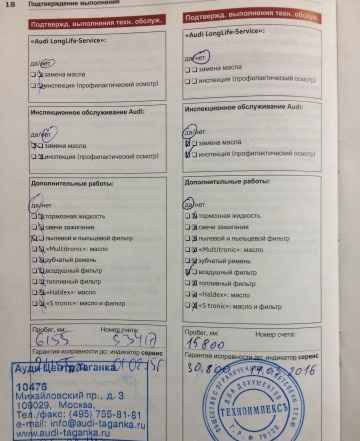 18 Подтверждение выполнения
Подтвержд. выполнения техн. обслуж.
«Audi LongLife-Service»:
да/нет
замена масла
инспекция (профилактический осмотр)
Инспекционное обслуживание Audi:
да/нет
замена масла
инспекция (профилактический осмотр)
Дополнительные работы:
да/нет
тормозная жидкость
свечи зажигания
пылевой и пыльцевой фильтр
«Multitronic»: масло
зубчатый ремень
воздушный фильтр
топливный фильтр
«Haldex»: масло
«S tronic»: масло и фильтр
Пробег, км: Номер счета:
6155
Гарантия исправности до: индикатор сервис
Ауди Центр Таганка
10476
Михайловский пр., д. 3
109029, Москва,
Тел./факс: (495) 755-81-81
e-mail: info@audi-taganka.ru
www.audi-taganka.ru
Подтвержд. выполнения техн. обслуж.
«Audi LongLife-Service»:
да/нет
замена масла
инспекция (профилактический осмотр)
Инспекционное обслуживание Audi:
да/нет
замена масла
инспекция (профилактический осмотр)
Дополнительные работы:
да/нет
тормозная жидкость
свечи зажигания
пылевой и пыльцевой фильтр
«Multitronic»: масло
зубчатый ремень
воздушный фильтр
топливный фильтр
«Haldex»: масло
«S tronic»: масло и фильтр
Пробег, км: Номер счета:
15800
Гарантия исправности до: индикатор сервис
30,800
2016
ДЛЯ ДОКУМЕНТОВ
ТЕХНОИМПЕКС